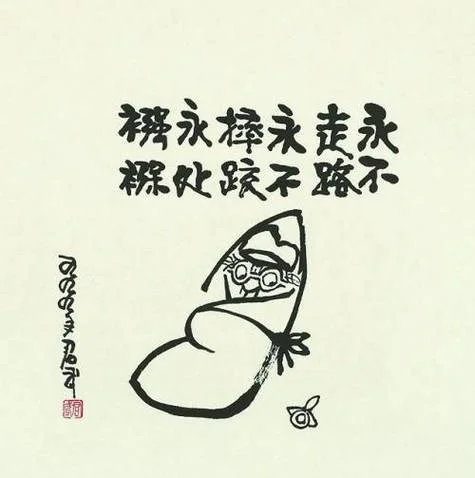 永不
走路
永不
摔跤
永处
襁褓